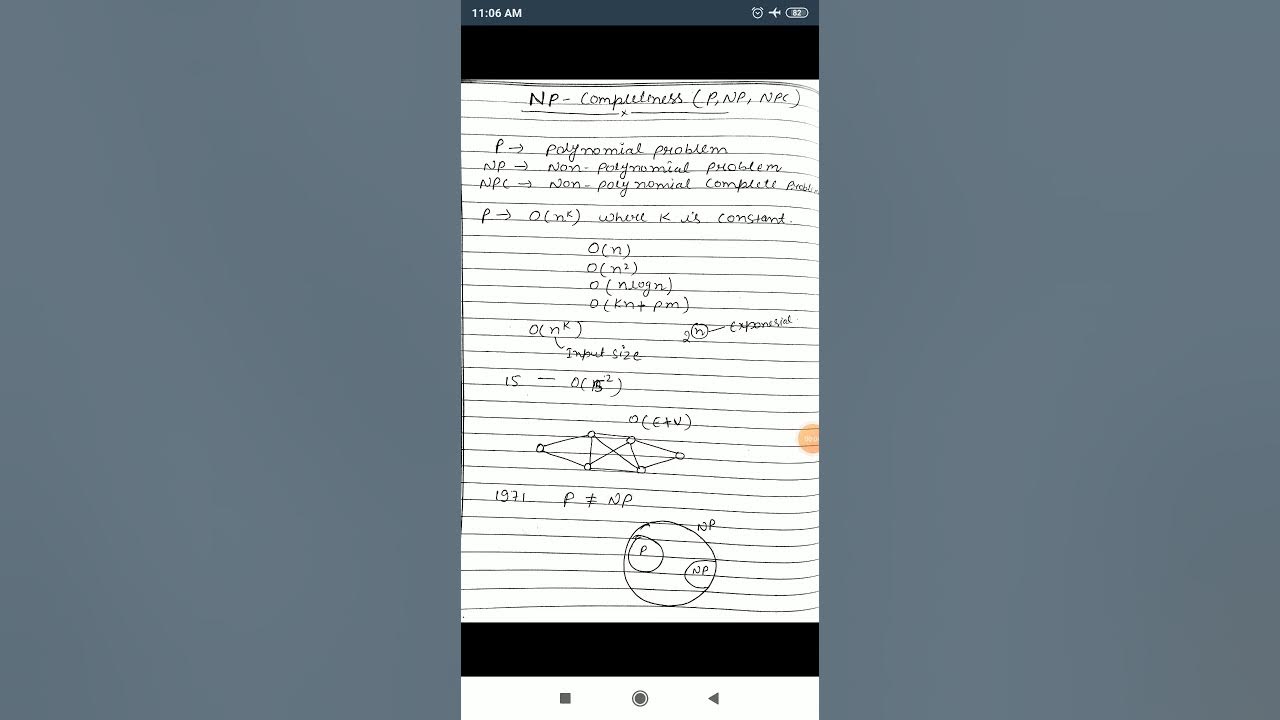 11:06 AM
82
NP - Completness (P, NP, NPC)
x
P → polynomial problem
NP → Non-polynomial problem
NPC → Non-polynomial complete proble
P → O(n^k) where K is constant.
O(n)
O(n²)
O(nlogn)
O(kn + pm)
O(n^k)
2^n - exponesial
Input size
15 — O(15²)
O(E+V)
1971 P ≠ NP
NP
P
NP